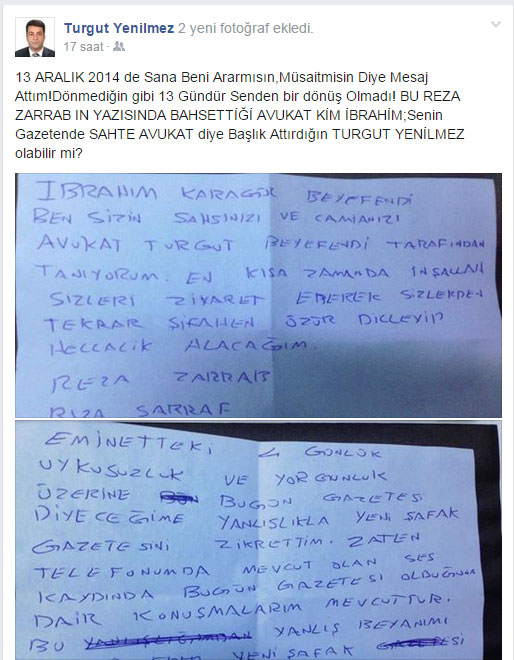 Turgut Yenilmez 2 yeni fotoğraf ekledi.
17 saat ·
13 ARALIK 2014 de Sana Beni Ararmısın,Müsaitmisin Diye Mesaj
Attım!Dönmediğin gibi 13 Gündür Senden bir dönüş Olmadı! BU REZA
ZARRAB IN YAZISINDA BAHSETTİĞİ AVUKAT KİM İBRAHİM;Senin
Gazetende SAHTE AVUKAT diye Başlık Attırdığın TURGUT YENİLMEZ
olabilir mi?
İBRAHİM KARAGÜL BEYEFENDİ
BEN SİZİN SAHSINIZI VE CAMİANIZI
AVUKAT TURGUT BEYEFENDİ TARAFINDAN
TANIYORUM. EN KISA ZAMANDA İNŞALLAH
SİZLERİ ZİYARET EDEREK SİZLERDEN
TEKRAR ŞİFAHEN ÖZÜR DİLEYİP
HELLALİK ALACAĞIM.
REZA ZARRAB
RIZA SARRAF
EMİNETTEKİ 4 GÜNLÜK
UYKUSUZLUK VE YORGUNLUK
ÜZERİNE BUGÜN GAZETESİ
DİYECEĞİME YANLISLIKLA YENİ ŞAFAK
GAZETESİNİ ZİKRETTİM. ZATEN
TELEFONUMDA MEVCUT OLAN SES
KAYDINDA BUGÜN GAZETESİ OLDUĞUNA
DAİR KONUSMALARIM MEVCUTTUR.
BU YANLIŞ BEYANIMI
YENİ ŞAFAK